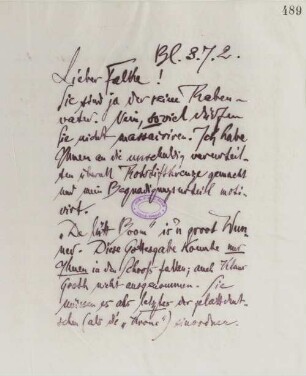 489
Bl. 3.7.2.
Lieber Falke!
Sie sind ja der reine Raben-
vater. Nein, soviel dürfen
Sie nicht massacriren. Ich habe
Ihnen an die unschuldig verurteil-
ten überall Rotstiftkreuze gemacht
und mein Begnadigungsurteil moti-
virt.
„De lütt Boom is'n groot Wun-
ner. Diese Gottesgabe konnte nur
Ihnen in den Schooß fallen; auch Klaus
Groth nicht ausgenommen. Sie
müssen es als letztes der plattdeut-
schen (als die „Krone") einordnen.